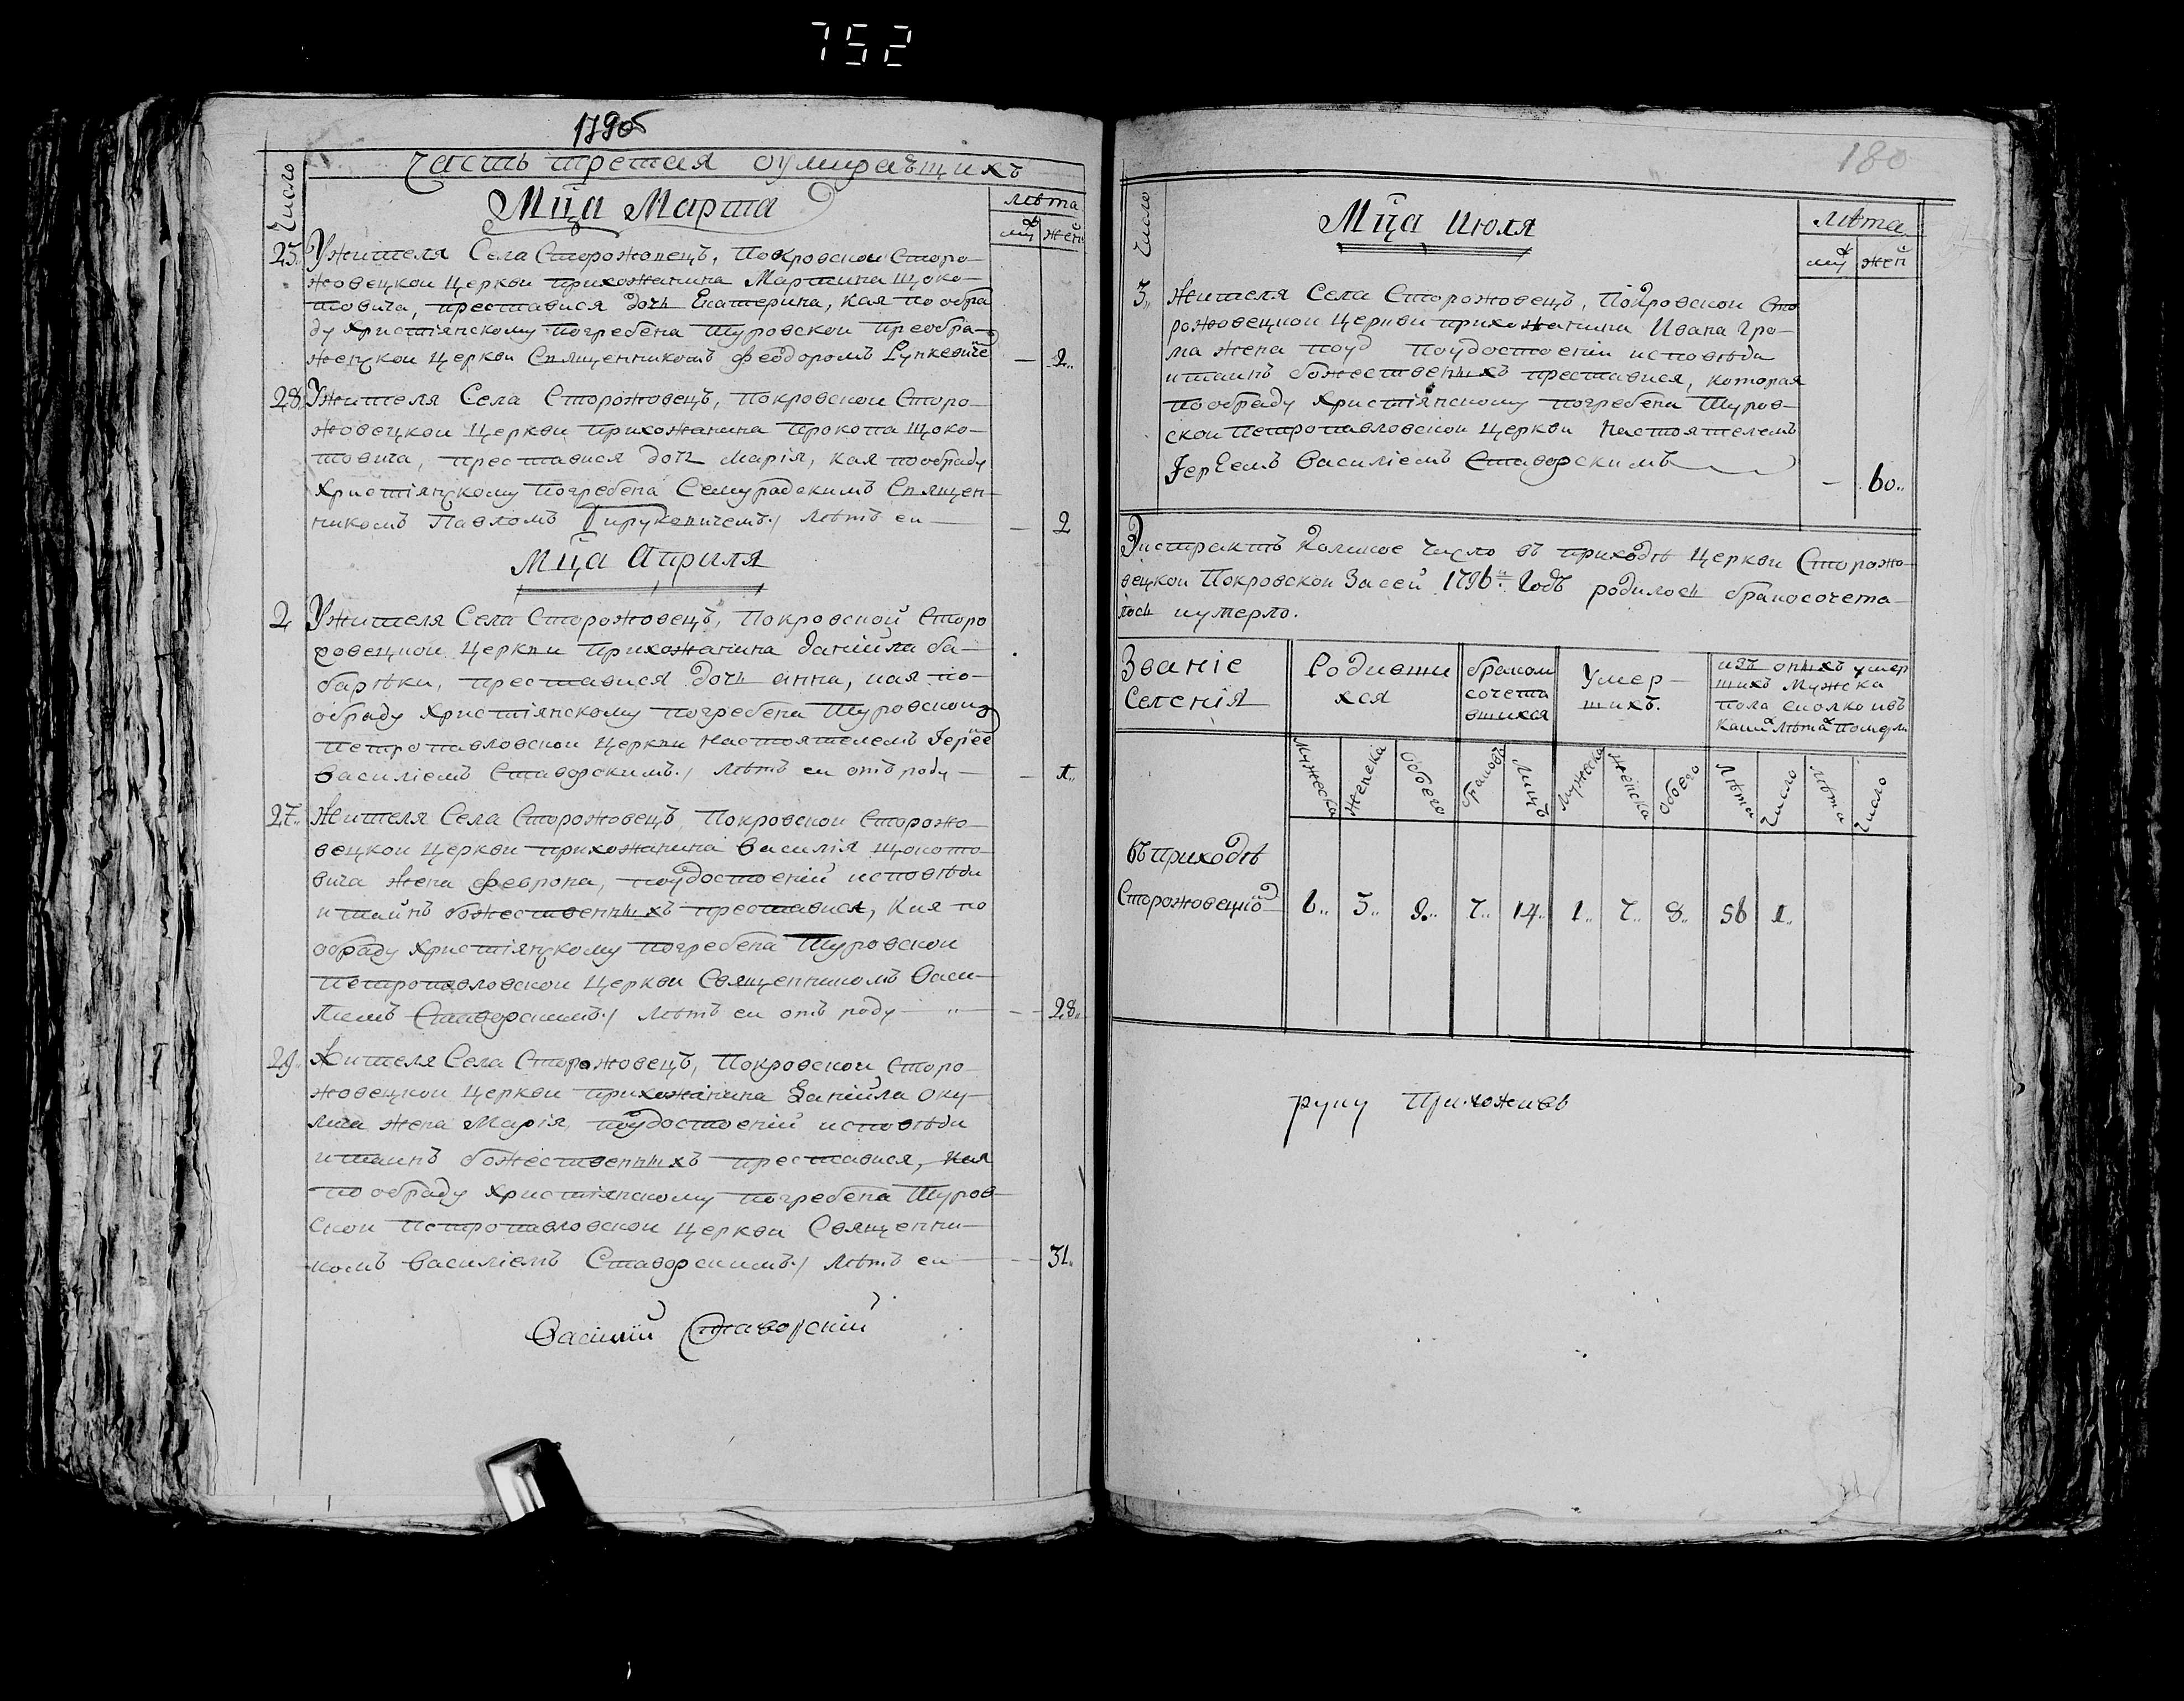 752
1796
Часть третая оумираѣщихъ
Число
Мца Марта
лѣта
му жен
25 Ужителя Села Сторожовецъ, Покровской Сторо-
жовецкой Церкви прихожанина Мартина Щоко-
товича, преставися дочь Екатерина, кая по обра
ду Христіянскому погребена Туровской Преобра-
женской Церкви Священникомъ Феодоромъ — 2..
28 Ужителя Села Сторожовецъ, Покровской Сторо-
жовецкой Церкви прихожанина Прокопа Щоко-
товича, преставися дочь Марія, кая пообраду
Христіянскому погребена Семурадскимъ Священ-
никомъ Павломъ лѣтъ еи — 2
Мца Априля
2 Ужителя Села Сторожовецъ, Покровской Сторо
ровецкой Церкви Прихожанина Даніила ба-
барѣки, преставися дочь анна, кая по-
обраду Христіянскому погребена Туровской
Петропавловской Церкви Настоятелемъ Іерее
Василіемъ Ставорскимъ./ Лѣтъ еи отъ роду — 1..
27.. Жителя Села Сторожовецъ, Покровской Сторожо-
вецкой Церкви прихожанина Василія Щокото-
вича жена Феврона, поудостоеніи исповѣди
итаинъ божественныхъ преставися, Кая по
обраду Христіянскому погребена Туровской
Петропавловской Церкви Священникомъ Васи-
лиемъ Ставорскимъ./ Лѣтъ еи отъ роду — 28..
29. Жителя Села Сторожовецъ, Покровской Сторо-
жовецкой Церкви Прихожанина Даніила Оку-
лича жена Марія, поудостоеніи исповѣди
итаинъ божественныхъ преставися, кая
по обраду Христіянскому погребена Туров-
ской Петропавловской Церкви Священни-
комъ Василіемъ Ставорскимъ./ Лѣтъ еи — 31.
Васілій Ставорскій
180
Число
Мца Июля
лѣта
му жен
3.. Жителя Села Сторожовецъ, Покровской Сто
рожовецкой Церкви прихожанина Ивана Гро-
ма жена поуд поудостоеніи исповѣди
итаинъ божественныхъ преставися, которая
пообраду Христіянскому погребена Туров-
ской Петропавловской Церкви Настоятелемъ
Іереемъ Василіемъ Ставорскимъ — 60..
Экстрактъ Коликое Число въ приходѣ Церкви Сторожо-
вецкой Покровской Засей 1796 Годъ родилось бракосочета-
лось иумерло.
Званіе Родивши браком Умер- изъ оныхъ умер
Селенія хся сочета шихъ. шихъ Мужска
вшихся пола сколко ивъ
каки лѣта померли
Мужеска Женска Обоего браковъ Лицъ Мужеска женска Обоего Лѣта Число Лѣта Число
въ приходѣ
Сторожовецкой 6.. 3.. 9.. 7.. 14.. 1.. 7.. 8.. 56 1..
руку Приложивъ